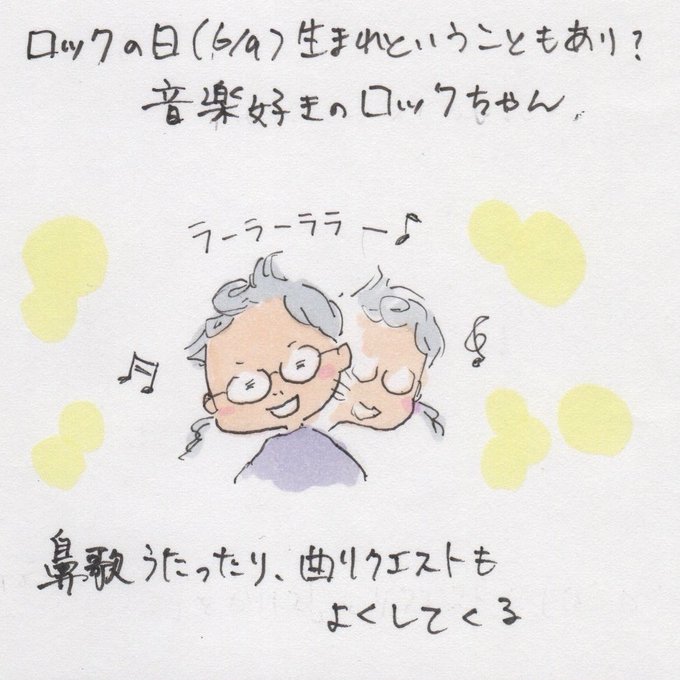 ロックの日(6/9)生まれということもあり?
音楽好きのロックちゃん。
ラーラーララー♪
鼻歌うたったり、曲リクエストも
よくしてくる